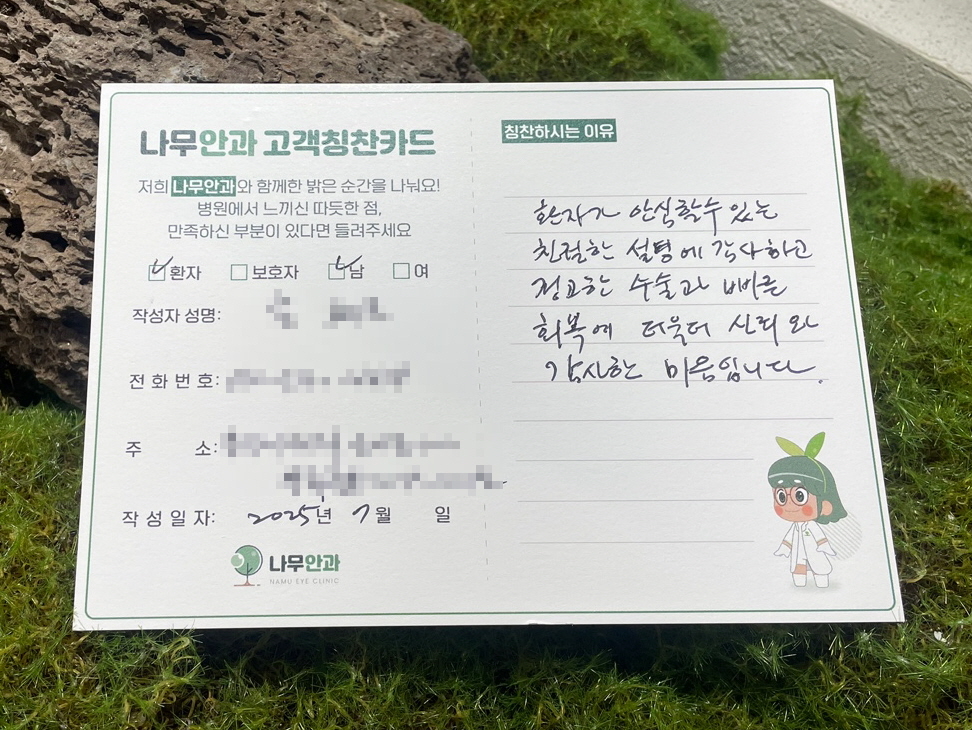 나무안과 고객칭찬카드
저희 나무안과와 함께한 밝은 순간을 나눠요!
병원에서 느끼신 따듯한 점,
만족하신 부분이 있다면 들려주세요
환자 보호자 남 여
작성자 성명:
전화번호:
주 소:
작성일자: 2025년 7월 일
나무안과
NAMU EYE CLINIC
칭찬하시는 이유
환자가 안심할수 있는
친절한 설명에 감사하고
정교한 수술과 빠른
회복에 더욱더 신뢰와
감사한 마음입니다.